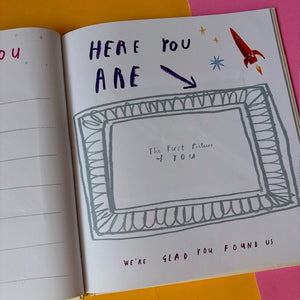 OU
HERE YOU
ARE
The First Picture
of YOU
WE'RE GLAD YOU FOUND US